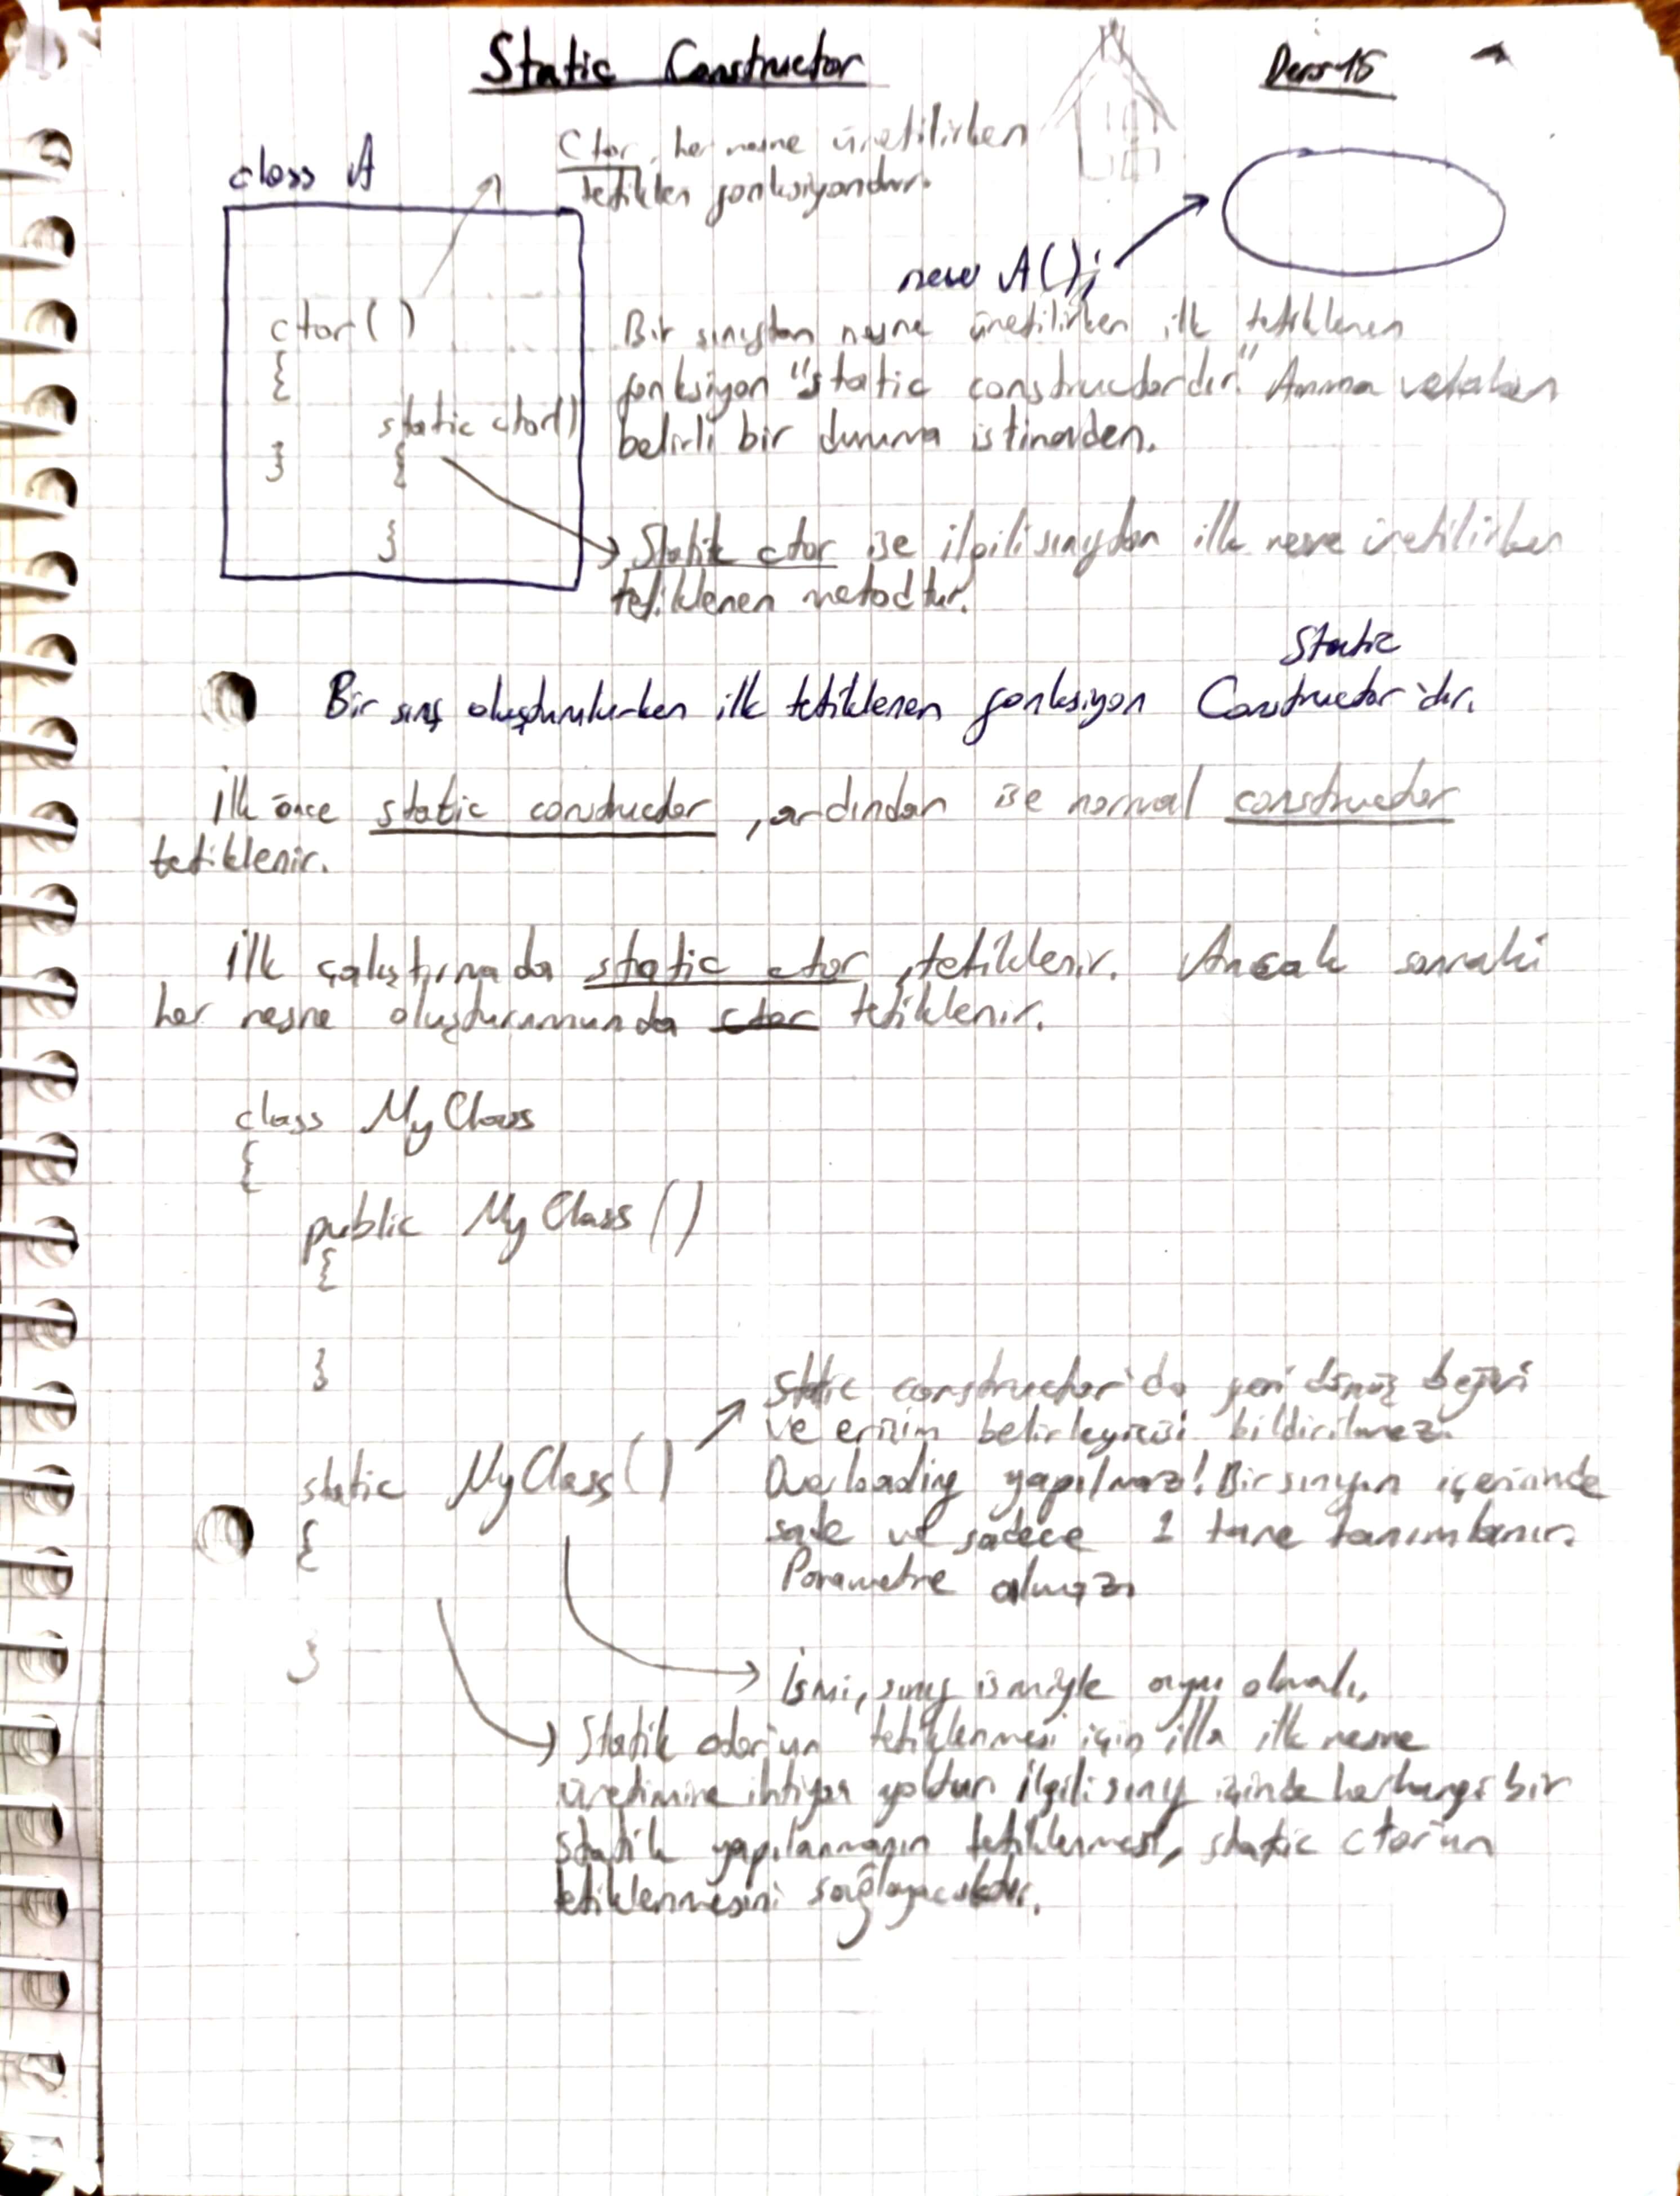 Static Constructor
Ders 15
class A
Ctor, her nesne üretilirken
tetiklen fonksiyondur.
new A();
ctor()
{
}
static ctor()
{
}
Bir sınıftan nesne üretilirken ilk tetiklenen
fonksiyon "static constructordır." Amma velakin
belirli bir duruma istinaden.
Statik ctor ise ilgili sınıftan ilk nesne üretilirken
tetiklenen metodtur.
Static
Bir sınıf oluşturulurken ilk tetiklenen fonksiyon Constructor'dır.
İlk önce static constructor, ardından ise normal constructor
tetiklenir.
İlk çalıştırmada static ctor, tetiklenir. Ancak sonraki
her nesne oluşturumunda ctor tetiklenir.
class MyClass
{
public MyClass()
{
}
static MyClass()
{
}
Static constructor'da geri dönüş değeri
ve erişim belirleyicisi bildirilmez.
Overloading yapılmaz! Bir sınıfın içerisinde
sade ve sadece 1 tane tanımlanır.
Parametre almaz.
İsmi, sınıf ismiyle aynı olmalı.
Statik ctor'un tetiklenmesi için illa ilk nesne
üretimine ihtiyaç yoktur. İlgili sınıf içinde herhangi bir
statik yapılanmanın tetiklenmesi, static ctor'un
tetiklenmesini sağlayacaktır.